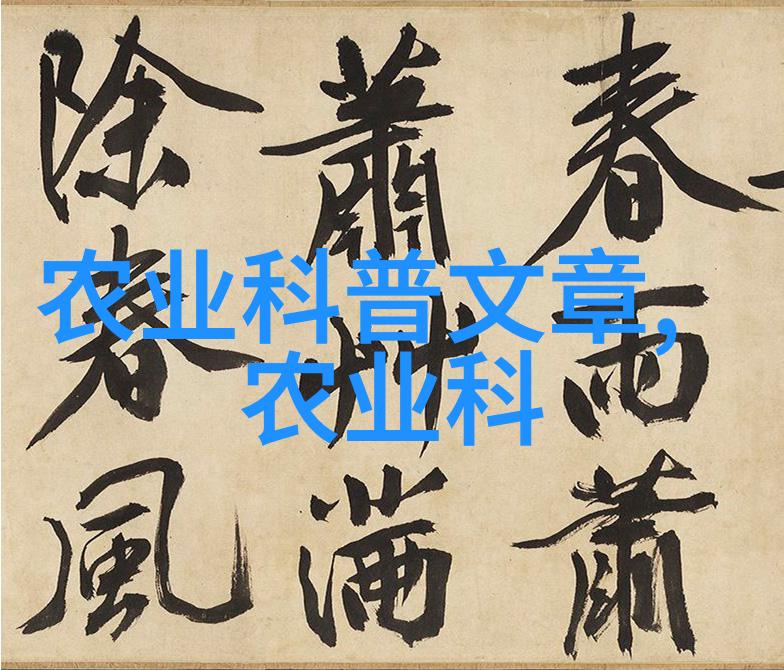 春雨蕭
蕭艸滿
除春風
农业科普文章,
农业科